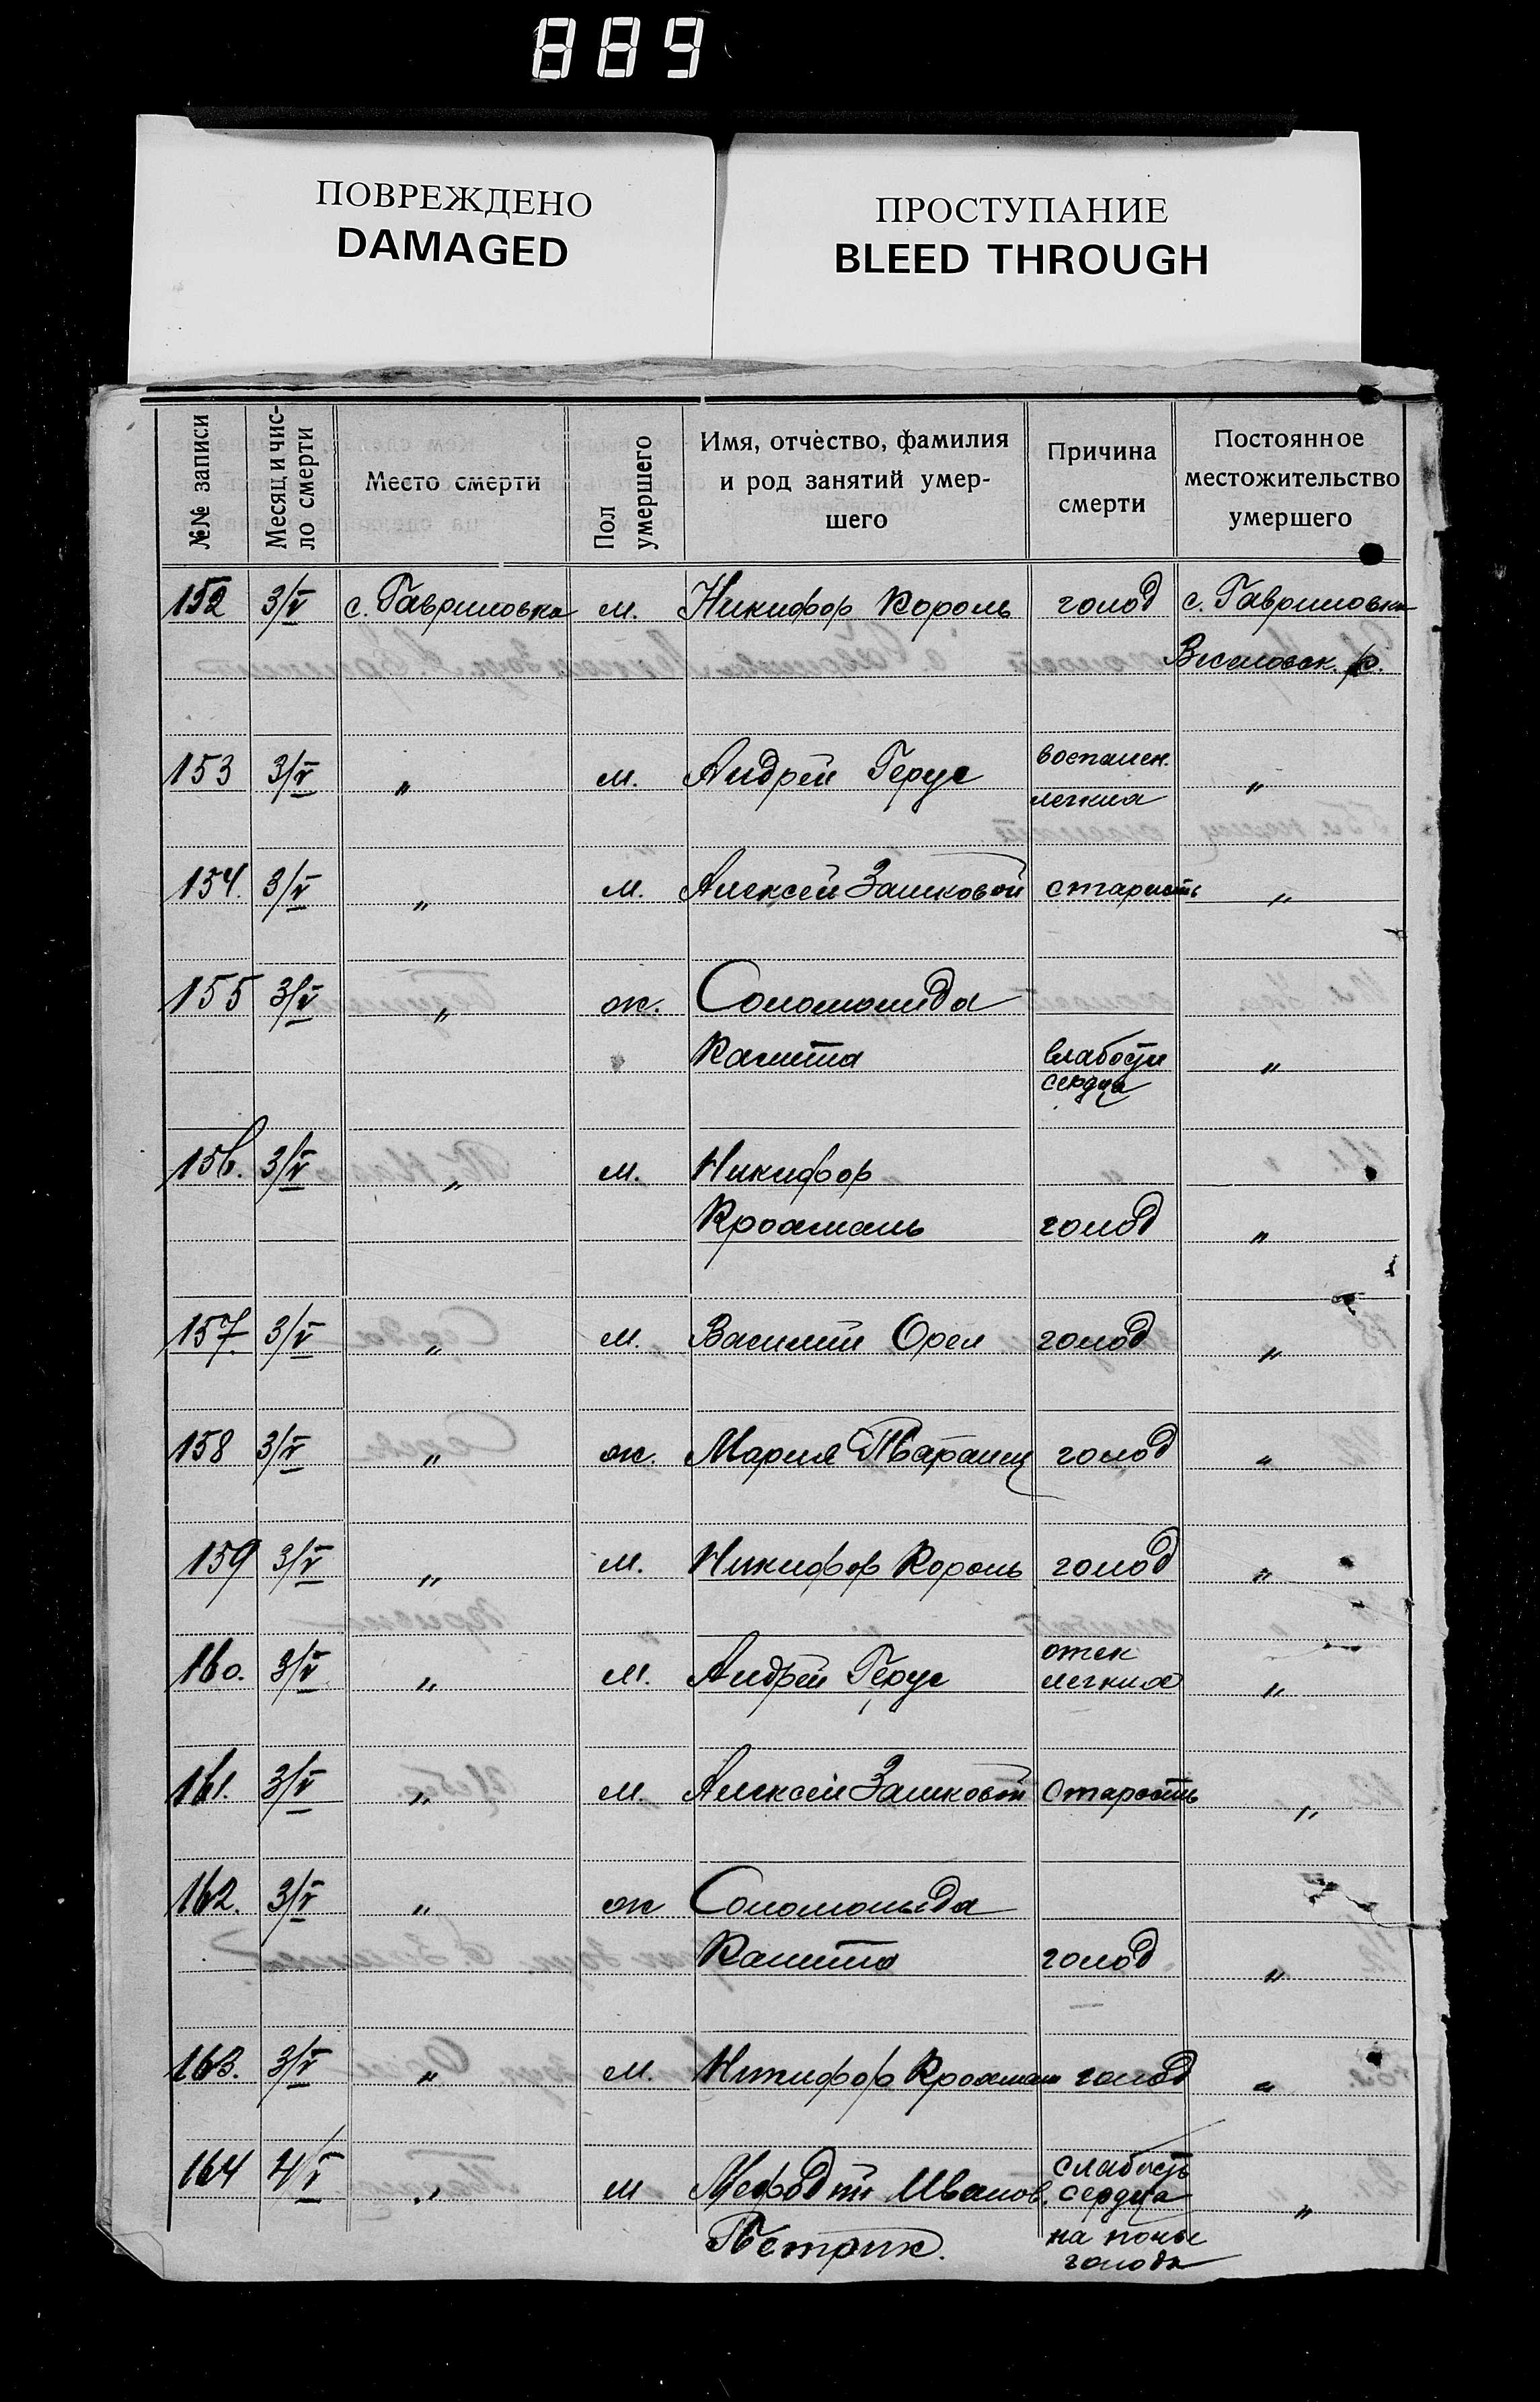 889
ПОВРЕЖДЕНО
DAMAGED
ПРОСТУПАНИЕ
BLEED THROUGH
№№ записи
Месяц и чис-
ло смерти
Место смерти
Пол
умершего
Имя, отчество, фамилия
и род занятий умер-
шего
Причина
смерти
Постоянное
местожительство
умершего
152 3/V с. Гавриловка м. Никифор Король голод с. Гавриловка
Веселовск. р.
153 3/V " м. Андрей Герус воспален. "
легких
154. 3/V " м. Алексей Зашковой старость "
155 3/V " ж. Соломонида
Калита слабости "
сердца
156. 3/V " м. Никифор
Крохмаль голод "
157. 3/V " м. Василий Орел голод "
158 3/V " ж. Мария голод "
159 3/V " м. Никифор Король голод "
160. 3/V " м. Андрей Герус отек "
легких
161. 3/V " м. Алексей Зашковой старость "
162. 3/V " ж Соломонида
Калита голод "
163. 3/V " м. Никифор Крохмаль голод "
164 4/V " м Мефодий Иванов. слабость "
сердца
Петрик. на почве
голода